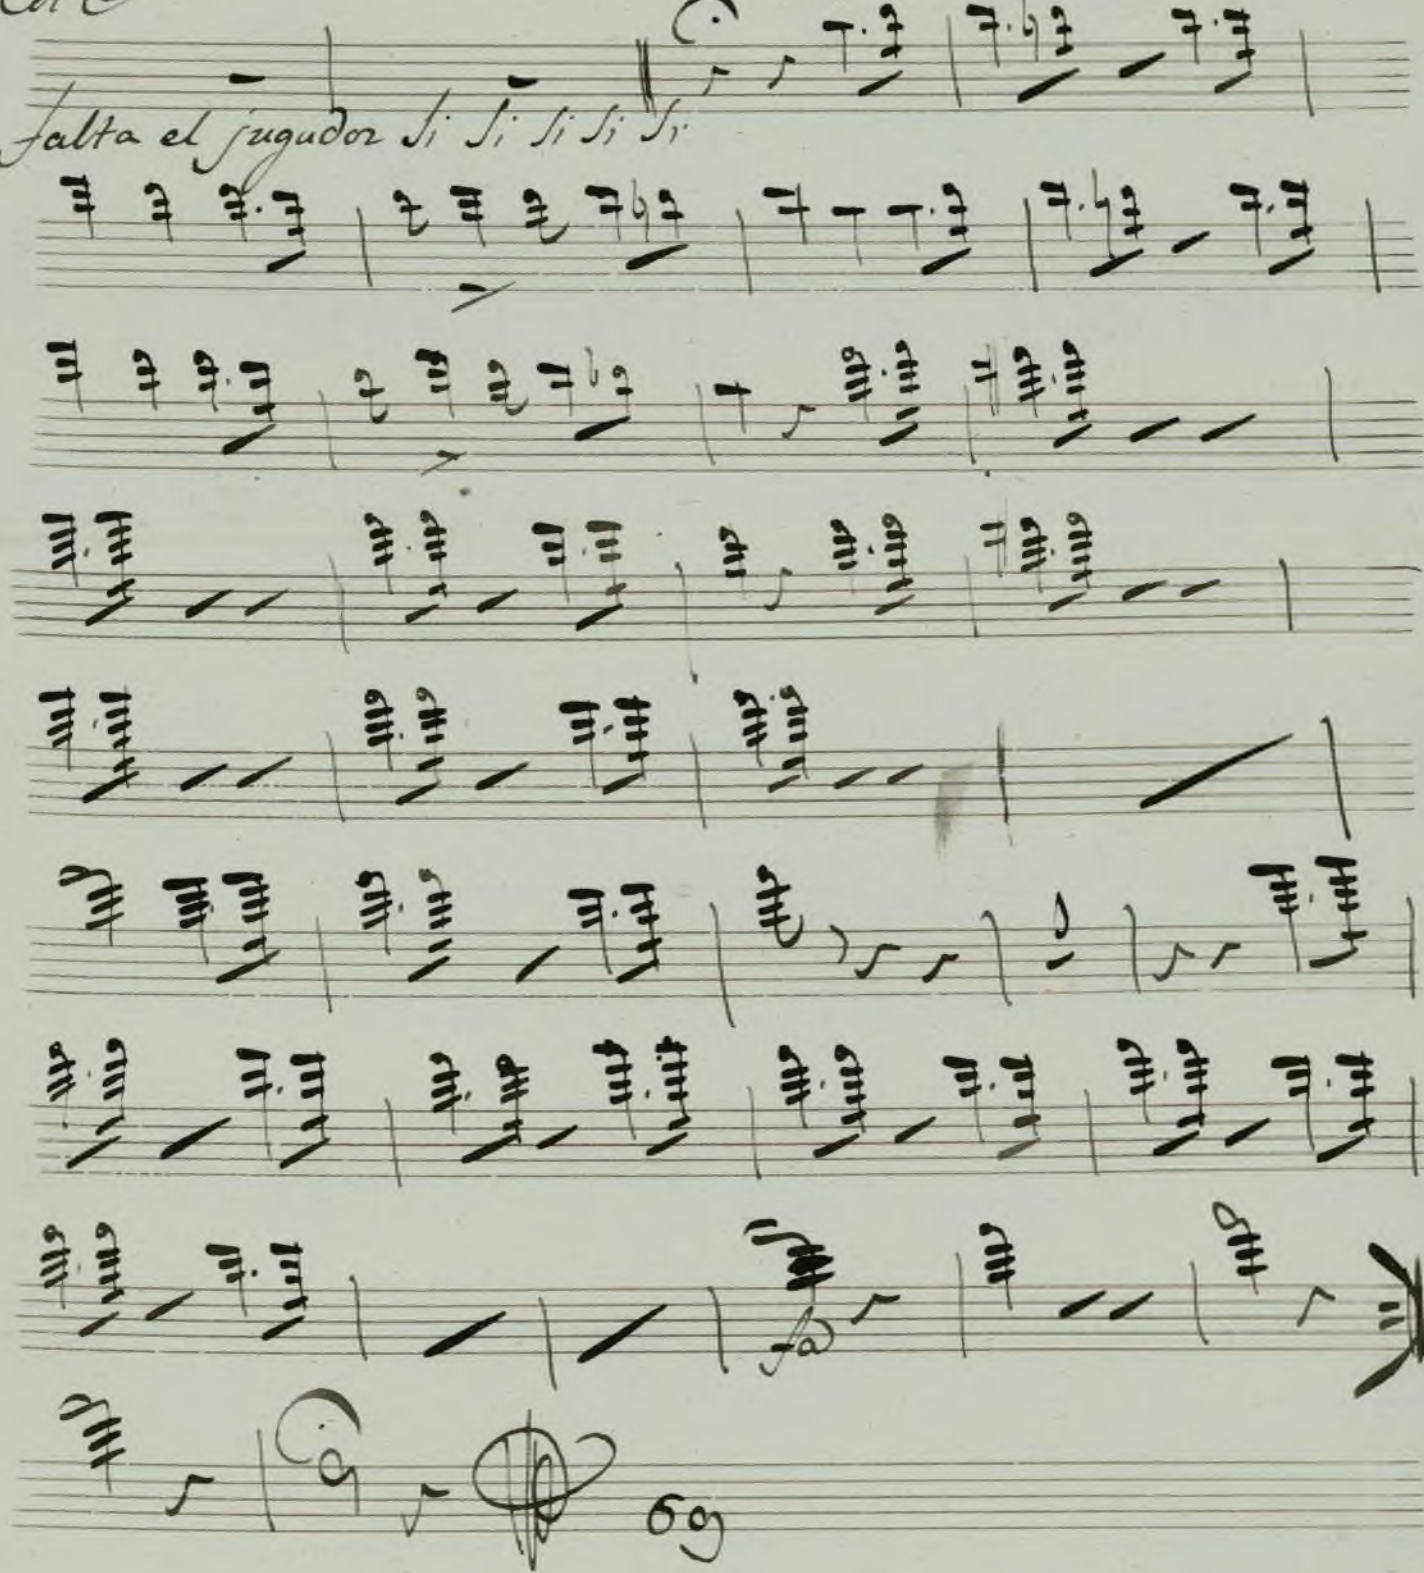 falta el jugador si si si si si
fa
69